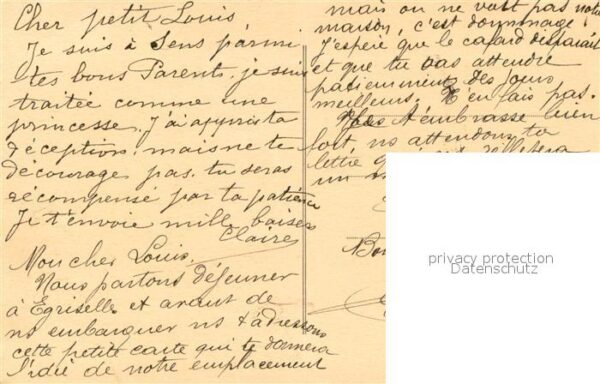 Cher petit Louis
Je suis à Sens parmi
tes bons Parents. je suis
traitée comme une
princesse. J'ai appris ta
déception, mais ne te
décourage pas, tu seras
récompensé par ta patience
Je t'envoie mille baisers
Claire
Mon cher Louis.
Nous partons déjeuner
à Egriselle et avant de
ns embarquer ns t'adressons
cette petite carte qui te donnera
l'idée de notre emplacement
mais on ne voit pas notre
maison, c'est dommage!
J'espère que le cafard disparait
et que tu vas attendre
patiemment des jours
meilleurs. N'en fais pas.
t'embrasse bien
fort, ns attendons ta
lettre
un
Bon
privacy protection
Datenschutz